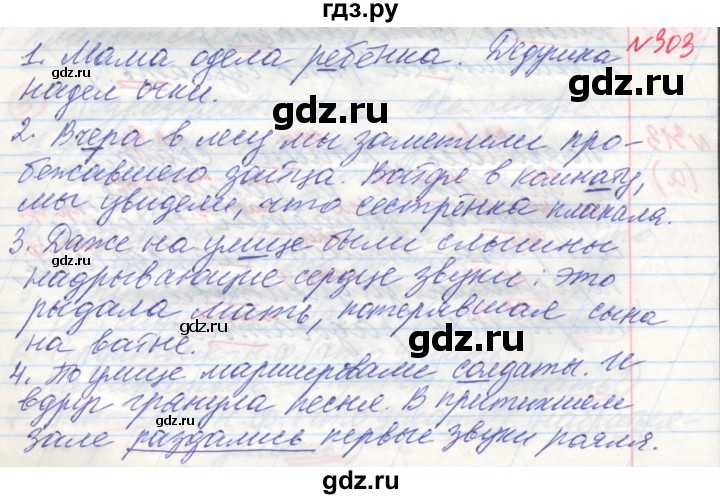 гдз.ру
1. Мама одела ребёнка. Дедушка №303
надел очки.
2. Вчера в лесу мы заметили про-
бежавшего зайца. Войдя в комнату,
мы увидели, что сестрёнка плакала.
3. Даже на улице были слышны
надрывающие сердце звуки: это
рыдала мать, потерявшая сына
на войне.
4. По улице маршировали солдаты. И
вдруг грянула песня. В притихшем
зале раздались первые звуки рояля.
gdz.ru
gdz.ru
gdz.ru
gdz.ru
gdz.ru
gdz.ru
gdz.ru
gdz.ru
gdz.ru
гдз.ру